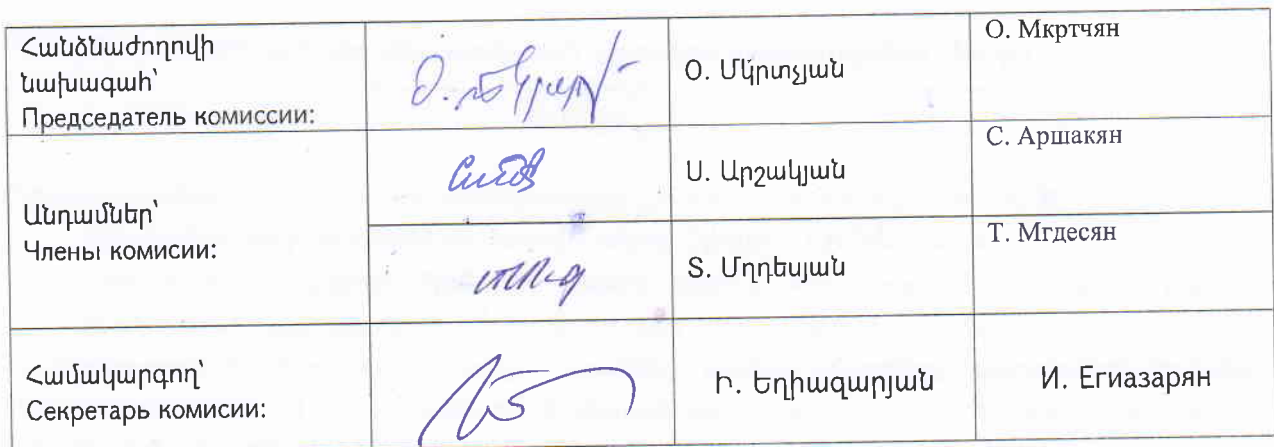 Հանձնաժողովի
նախագահ՝
Председатель комиссии:
Օ. Մկրտչյան
О. Мкртчян
Անդամներ՝
Члены комисии:
Ս. Արշակյան
С. Аршакян
Տ. Մղդեսյան
Т. Мгдесян
Համակարգող՝
Секретарь комисии:
Ի. Եղիազարյան
И. Егиазарян